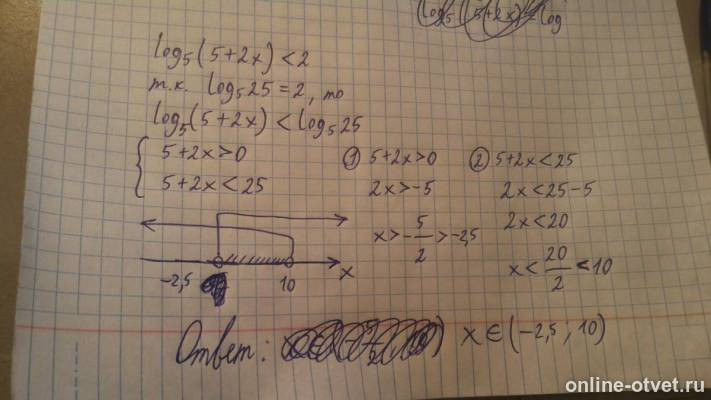 log₅(5+2x)=log
log₅(5+2x)<2
т.к. log₅25=2, то
log₅(5+2x)<log₅25
{ 5+2x>0
5+2x<25
① 5+2x>0
2x>-5
x>-5/2>-2,5
② 5+2x<25
2x<25-5
2x<20
x<20/2<10
-2,5 10 x
Ответ: x∈(-2,5, 10)
online-otvet.ru